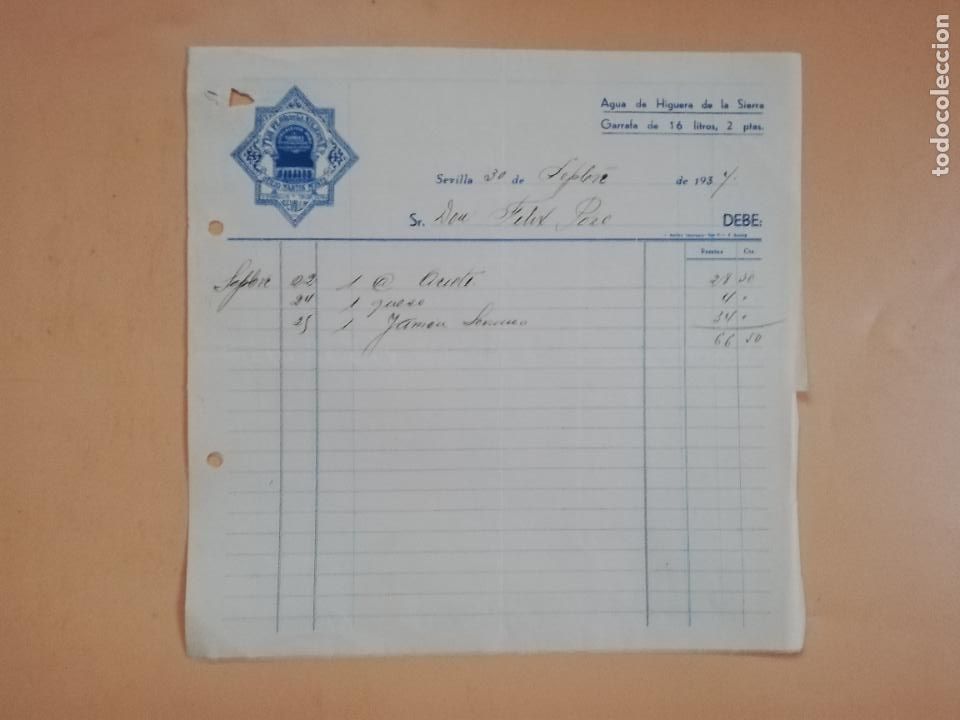 Agua de Higuera de la Sierra
Garrafa de 16 litros, 2 ptas.
Sevilla 30 de Septbre de 1937.
Sr. Don Felix Pozo DEBE:
Pesetas Cts.
Septbre 22 1 @ Aceite 28 50
24 1 queso 4 "
25 1 Jamon Serrano 34 "
66 50
SEVILLA
todocoleccion.net